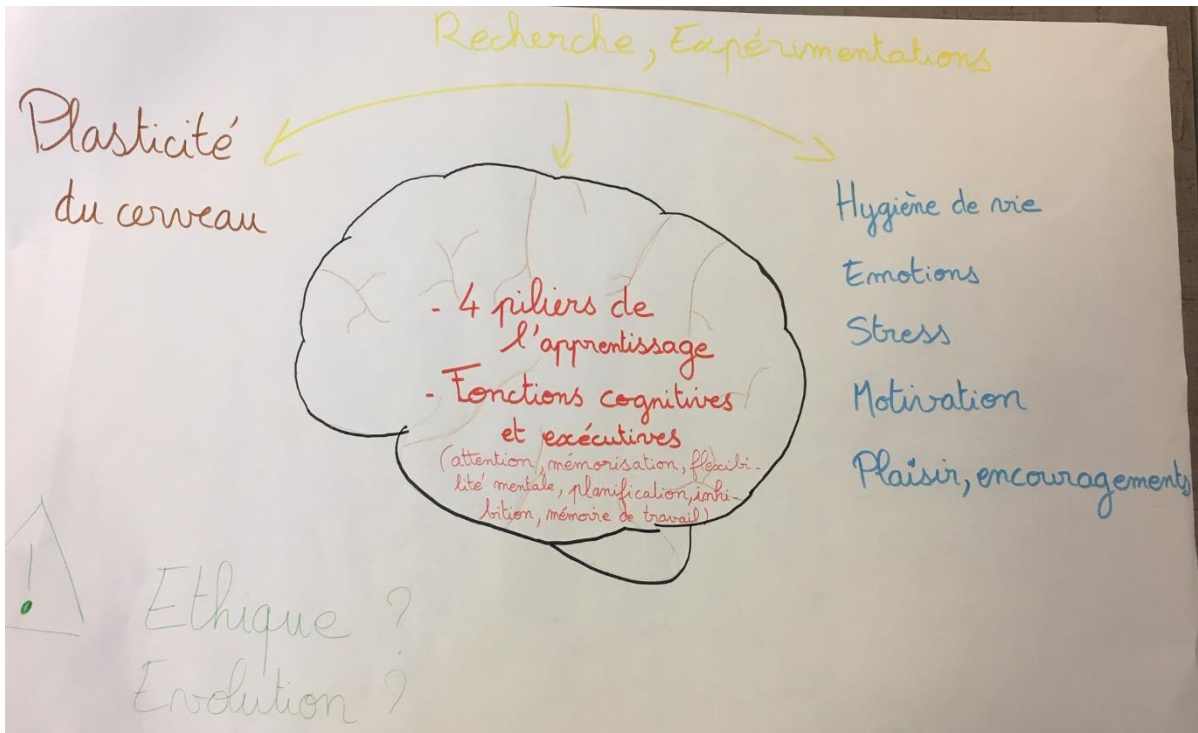 Recherche, Expérimentations
Plasticité
du cerveau
- 4 piliers de
l'apprentissage
- Fonctions cognitives
et exécutives
(attention, mémorisation, flexibi-
lité mentale, planification, inhi-
bition, mémoire de travail)
Hygiène de vie
Emotions
Stress
Motivation
Plaisir, encouragements
!
Ethique ?
Evolution ?